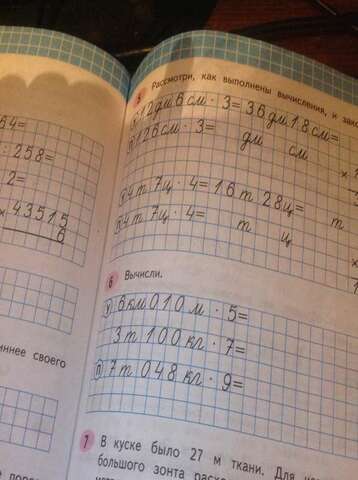 64=
: 258=
2=
× 43515
6
иннее своего
5 Рассмотри, как выполнены вычисления, и
12 дм 6 см · 3 = 36 дм 18 см =
126 см · 3 = дм см
4 т 7 ц · 4 = 16 т 28 ц = т
4 т 7 ц · 4 = т ц
6 Вычисли.
6 км 010 м · 5 =
3 т 100 кг · 7 =
7 т 048 кг · 9 =
7 В куске было 27 м ткани. Для
большого зонта